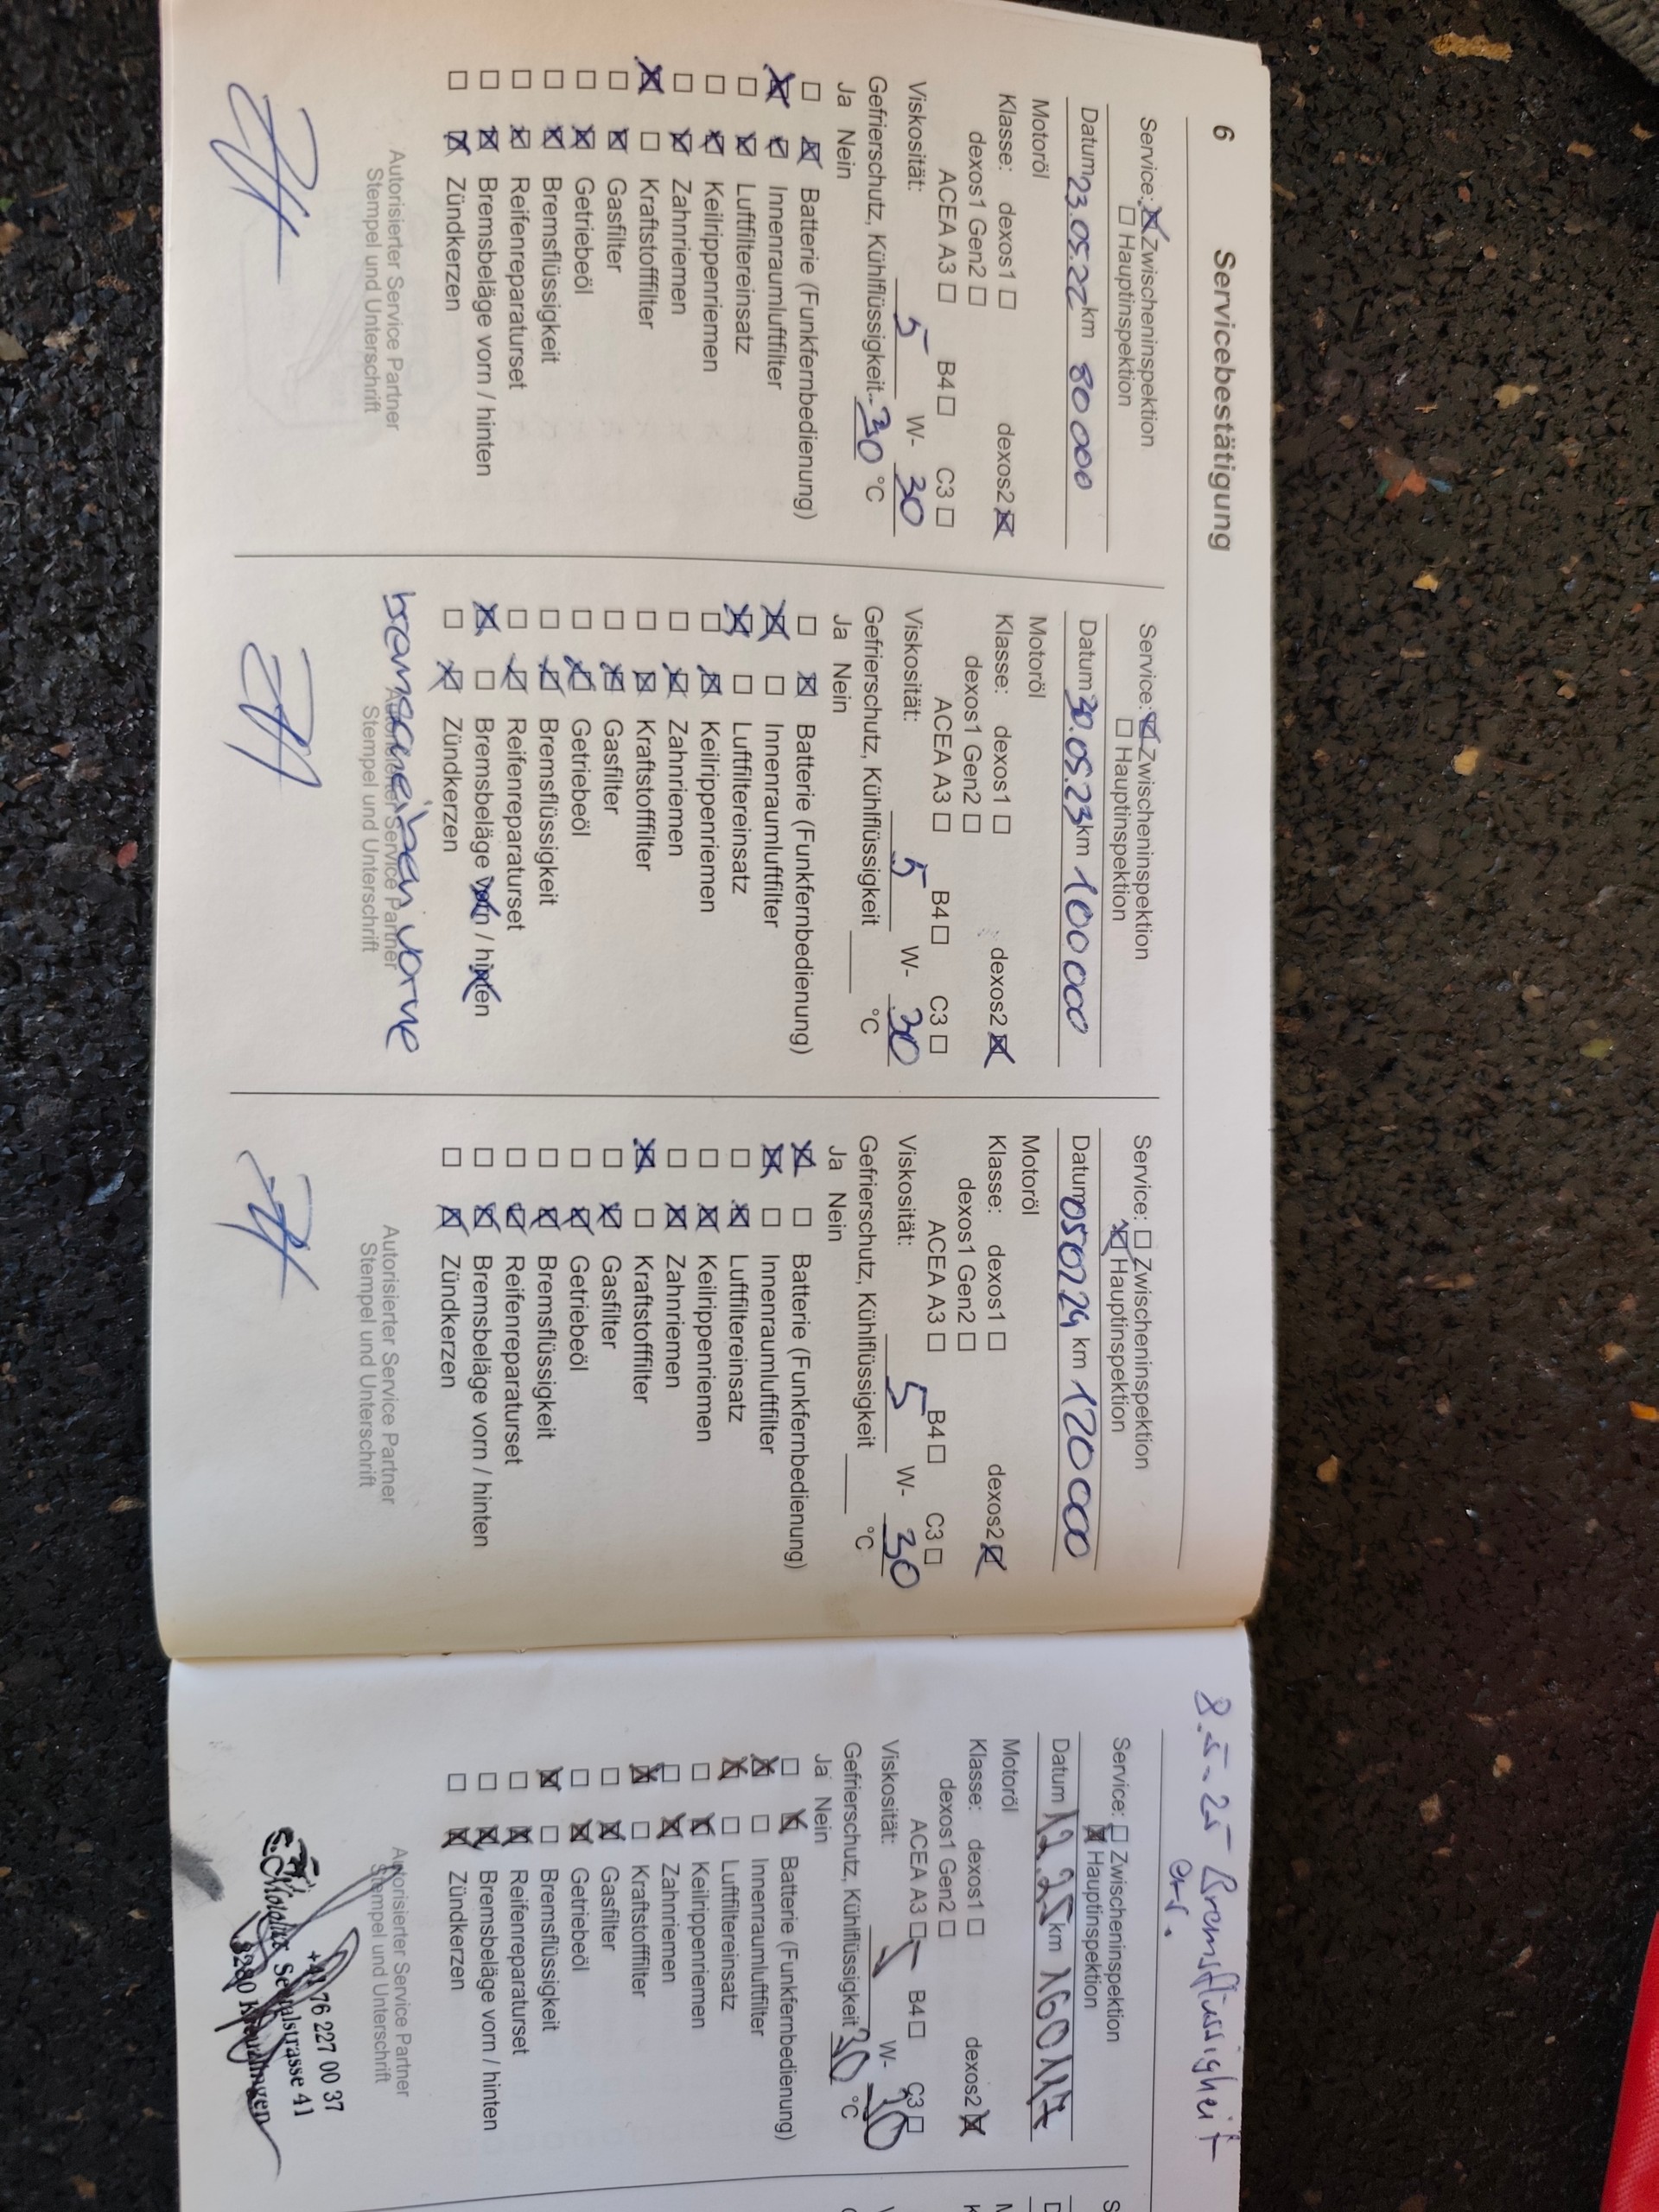 6 Servicebestätigung
Service: ☒ Zwischeninspektion
☐ Hauptinspektion
Datum 23.05.22 km 80 000
Motoröl
Klasse: dexos1 ☐ dexos2 ☒
dexos1 Gen2 ☐
ACEA A3 ☐ B4 ☐ C3 ☐
Viskosität: 5 W- 30
Gefrierschutz, Kühlflüssigkeit -30 °C
Ja Nein
☐ ☒ Batterie (Funkfernbedienung)
☒ ☒ Innenraumluftfilter
☐ ☒ Luftfiltereinsatz
☐ ☒ Keilrippenriemen
☐ ☒ Zahnriemen
☒ ☐ Kraftstofffilter
☐ ☒ Gasfilter
☐ ☒ Getriebeöl
☐ ☒ Bremsflüssigkeit
☐ ☒ Reifenreparaturset
☐ ☒ Bremsbeläge vorn / hinten
☐ ☒ Zündkerzen
Autorisierter Service Partner
Stempel und Unterschrift
Service: ☒ Zwischeninspektion
☐ Hauptinspektion
Datum 30.05.23 km 100 000
Motoröl
Klasse: dexos1 ☐ dexos2 ☒
dexos1 Gen2 ☐
ACEA A3 ☐ B4 ☐ C3 ☐
Viskosität: 5 W- 30
Gefrierschutz, Kühlflüssigkeit °C
Ja Nein
☐ ☒ Batterie (Funkfernbedienung)
☒ ☐ Innenraumluftfilter
☒ ☐ Luftfiltereinsatz
☐ ☒ Keilrippenriemen
☐ ☒ Zahnriemen
☐ ☒ Kraftstofffilter
☐ ☒ Gasfilter
☐ ☒ Getriebeöl
☐ ☒ Bremsflüssigkeit
☐ ☒ Reifenreparaturset
☒ ☐ Bremsbeläge vorn / hinten
☐ ☒ Zündkerzen
bremscheiben vorne
Autorisierter Service Partner
Stempel und Unterschrift
Service: ☐ Zwischeninspektion
☒ Hauptinspektion
Datum 050224 km 120 000
Motoröl
Klasse: dexos1 ☐ dexos2 ☒
dexos1 Gen2 ☐
ACEA A3 ☐ B4 ☐ C3 ☐
Viskosität: 5 W- 30
Gefrierschutz, Kühlflüssigkeit °C
Ja Nein
☒ ☐ Batterie (Funkfernbedienung)
☒ ☐ Innenraumluftfilter
☐ ☒ Luftfiltereinsatz
☐ ☒ Keilrippenriemen
☐ ☒ Zahnriemen
☒ ☐ Kraftstofffilter
☐ ☒ Gasfilter
☐ ☒ Getriebeöl
☐ ☒ Bremsflüssigkeit
☐ ☒ Reifenreparaturset
☐ ☒ Bremsbeläge vorn / hinten
☐ ☒ Zündkerzen
Autorisierter Service Partner
Stempel und Unterschrift
8.5.25 Bremsflüssigkeit
ers.
Service: ☐ Zwischeninspektion
☒ Hauptinspektion
Datum 12.25 km 160117
Motoröl
Klasse: dexos1 ☐ dexos2 ☒
dexos1 Gen2 ☐
ACEA A3 ☐ B4 ☐ C3 ☐
Viskosität: 5 W- 30
Gefrierschutz, Kühlflüssigkeit 30 °C
Ja Nein
☐ ☒ Batterie (Funkfernbedienung)
☒ ☐ Innenraumluftfilter
☒ ☐ Luftfiltereinsatz
☐ ☒ Keilrippenriemen
☐ ☒ Zahnriemen
☒ ☐ Kraftstofffilter
☐ ☒ Gasfilter
☐ ☒ Getriebeöl
☒ ☐ Bremsflüssigkeit
☐ ☒ Reifenreparaturset
☐ ☒ Bremsbeläge vorn / hinten
☐ ☒ Zündkerzen
Autorisierter Service Partner
Stempel und Unterschrift
+41 76 227 00 37
41
8280 Kreuzlingen